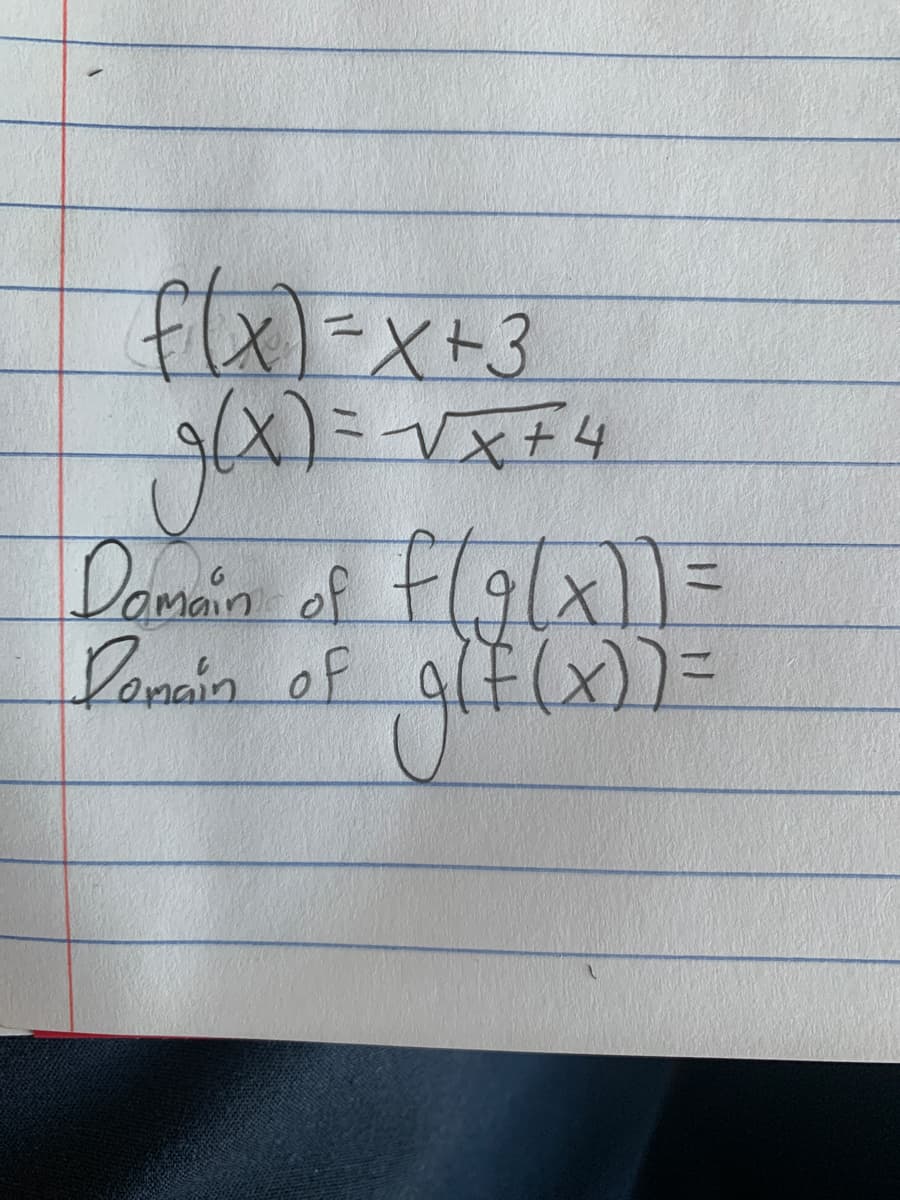 f(x)=x+3
g(x)=√x+4
Domain of f(g(x))=
Domain of g(f(x))=